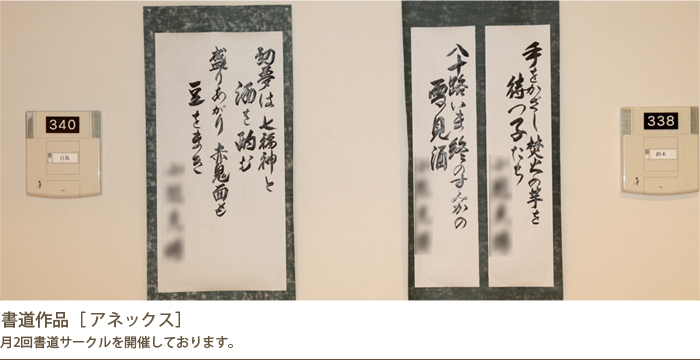 340
初夢は七福神と
酒を酌む
盛りあがり赤鬼面も
豆をまき
手をかざし焚火の芋を
待つ子たち
八十路いま終のすみかの
雪見酒
338
書道作品［アネックス］
月2回書道サークルを開催しております。